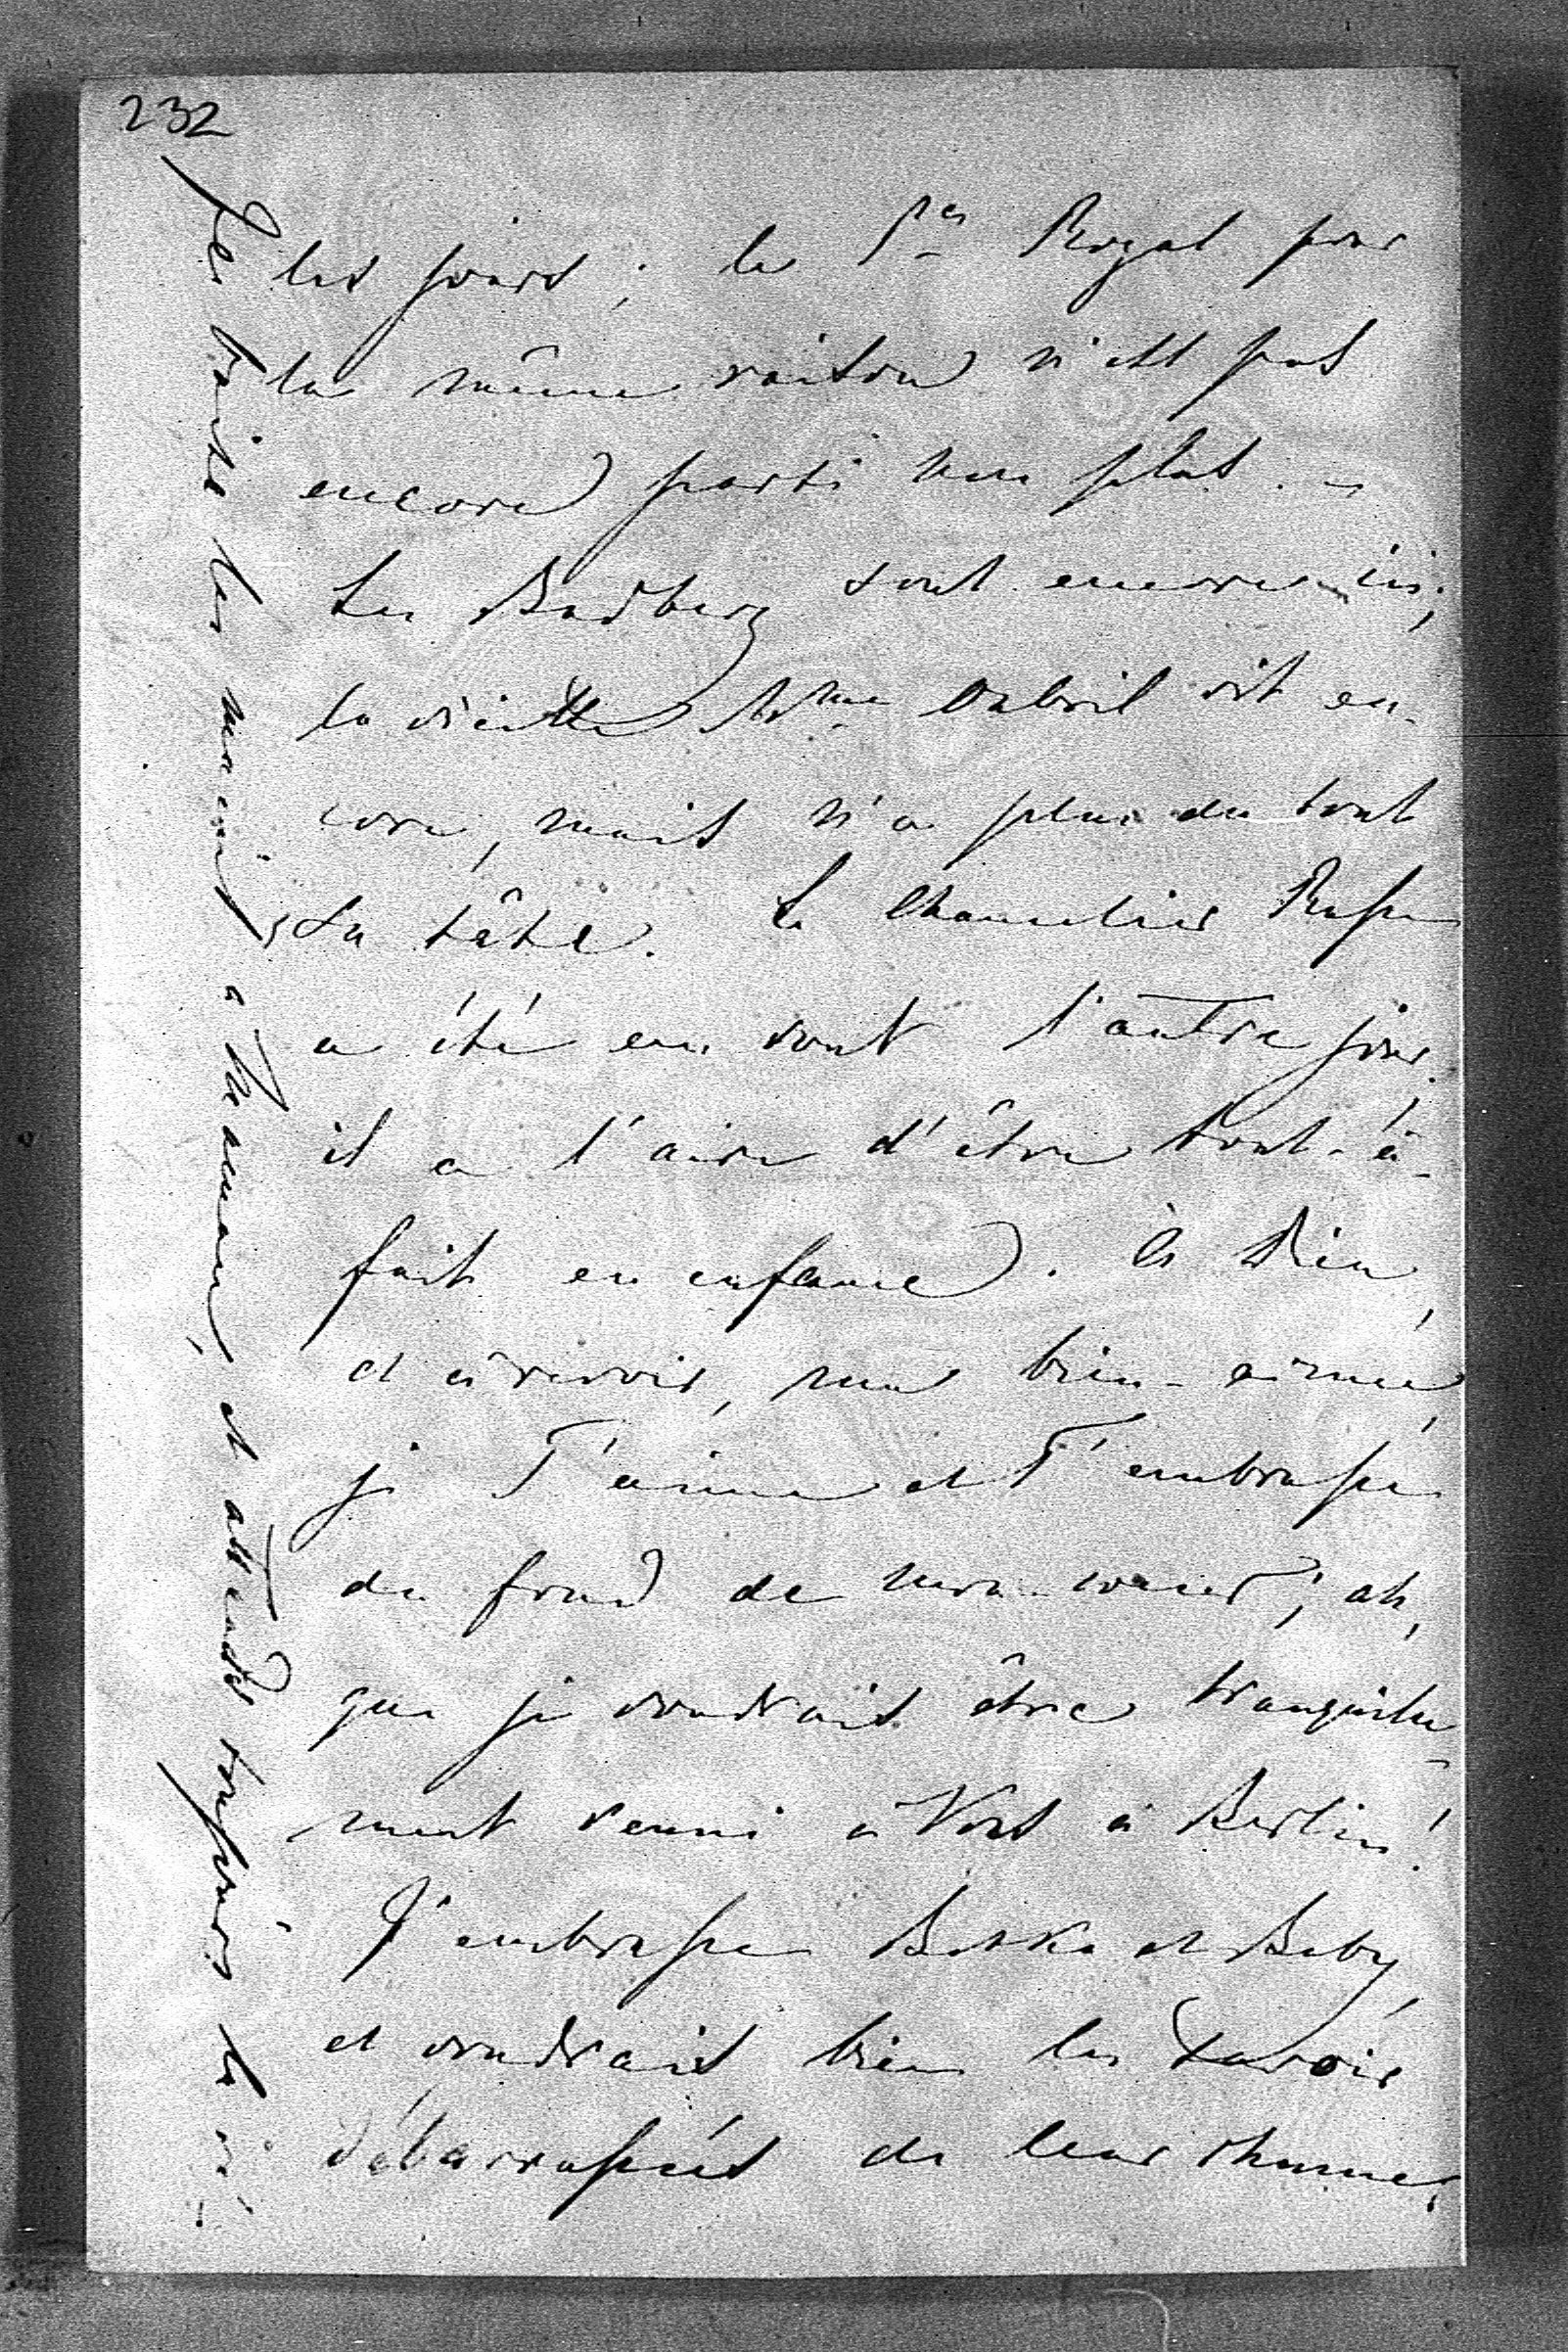 232
les jours; le P^ce Royal pour
la même raison n'est pas
encore parti non plus. –
Les Budberg sont encore ici;
la vieille M^me Oubril vit en-
core, mais n'a plus du tout
sa tête. Le Chancelier Russe
a été en vont l'autre jour,
il a l'aire d'être tout-à-
fait en enfance. A Dieu,
et à revoir, mon bien-aimé,
je T'aime et T'embrasse
du fond de mon coeur; ah,
que je voudrais être tranquille-
ment réuni à Vous à Berlin!
J'embrasse et Baby,
et voudrais bien les savoir
débarrassés de leur rhume,
Je baise les mains à Maman, et attends toujours